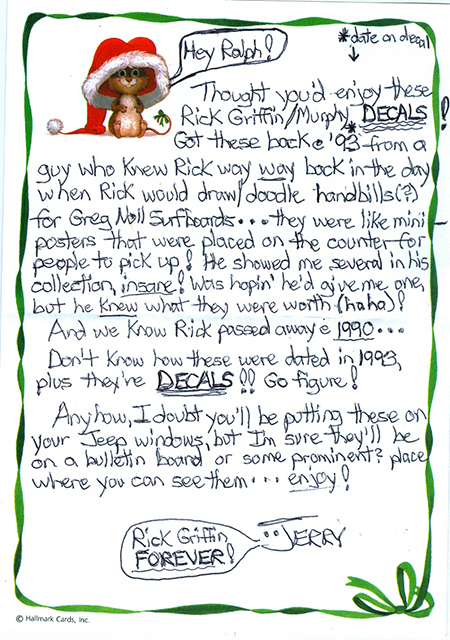 Hey Ralph!
*date on decal
↓
Thought you'd enjoy these
Rick Griffin/Murphy DECALS!
*
Got these back @ '93 from a
guy who knew Rick way way back in the day
when Rick would draw/doodle handbills(?)
for Greg Noll Surfboards... they were like mini-
posters that were placed on the counter for
people to pick up! He showed me several in his
collection, insane! Was hopin' he'd give me one,
but he knew what they were worth (haha)!
And we know Rick passed away @ 1990...
Don't know how these were dated in 1993,
plus they're DECALS!! Go figure!
Anyhow, I doubt you'll be putting these on
your Jeep windows, but I'm sure they'll be
on a bulletin board or some prominent? place
where you can see them... enjoy!
Rick Griffin
FOREVER!
JERRY
© Hallmark Cards, Inc.